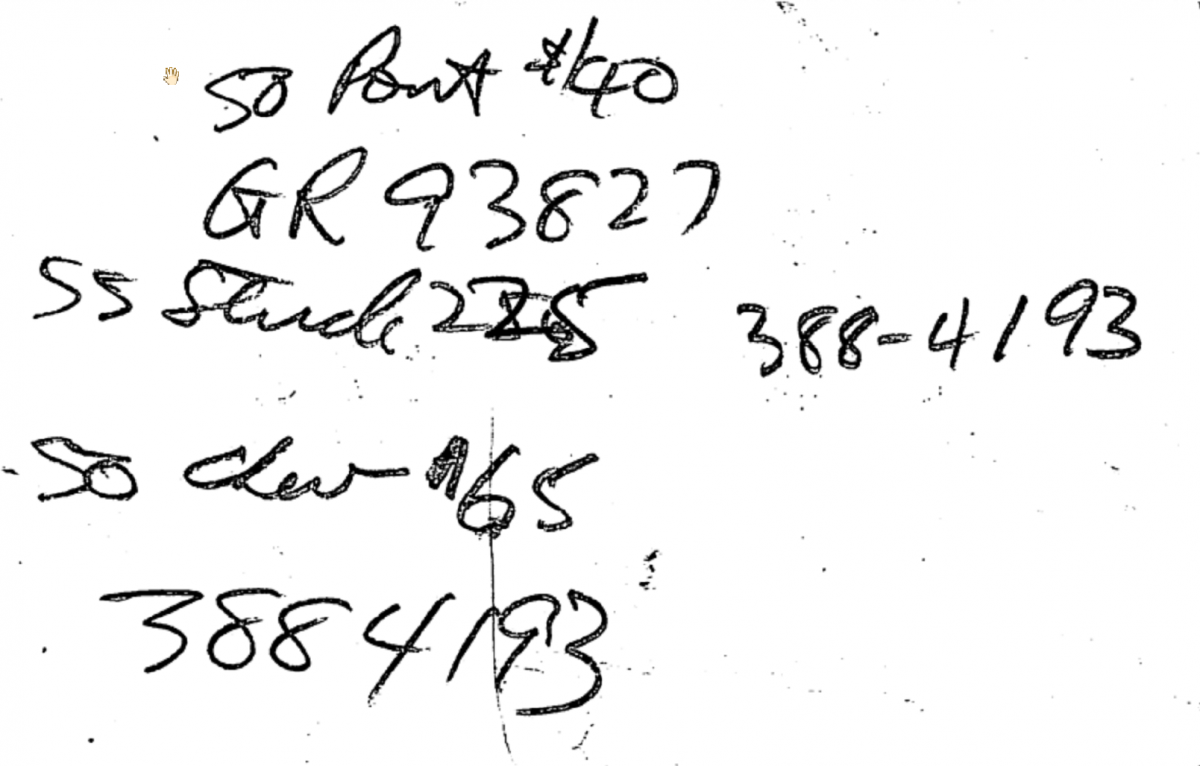 50 Pont $140
GR 93827
55 Stude 225
388-4193
50 Chev $165
388 4193